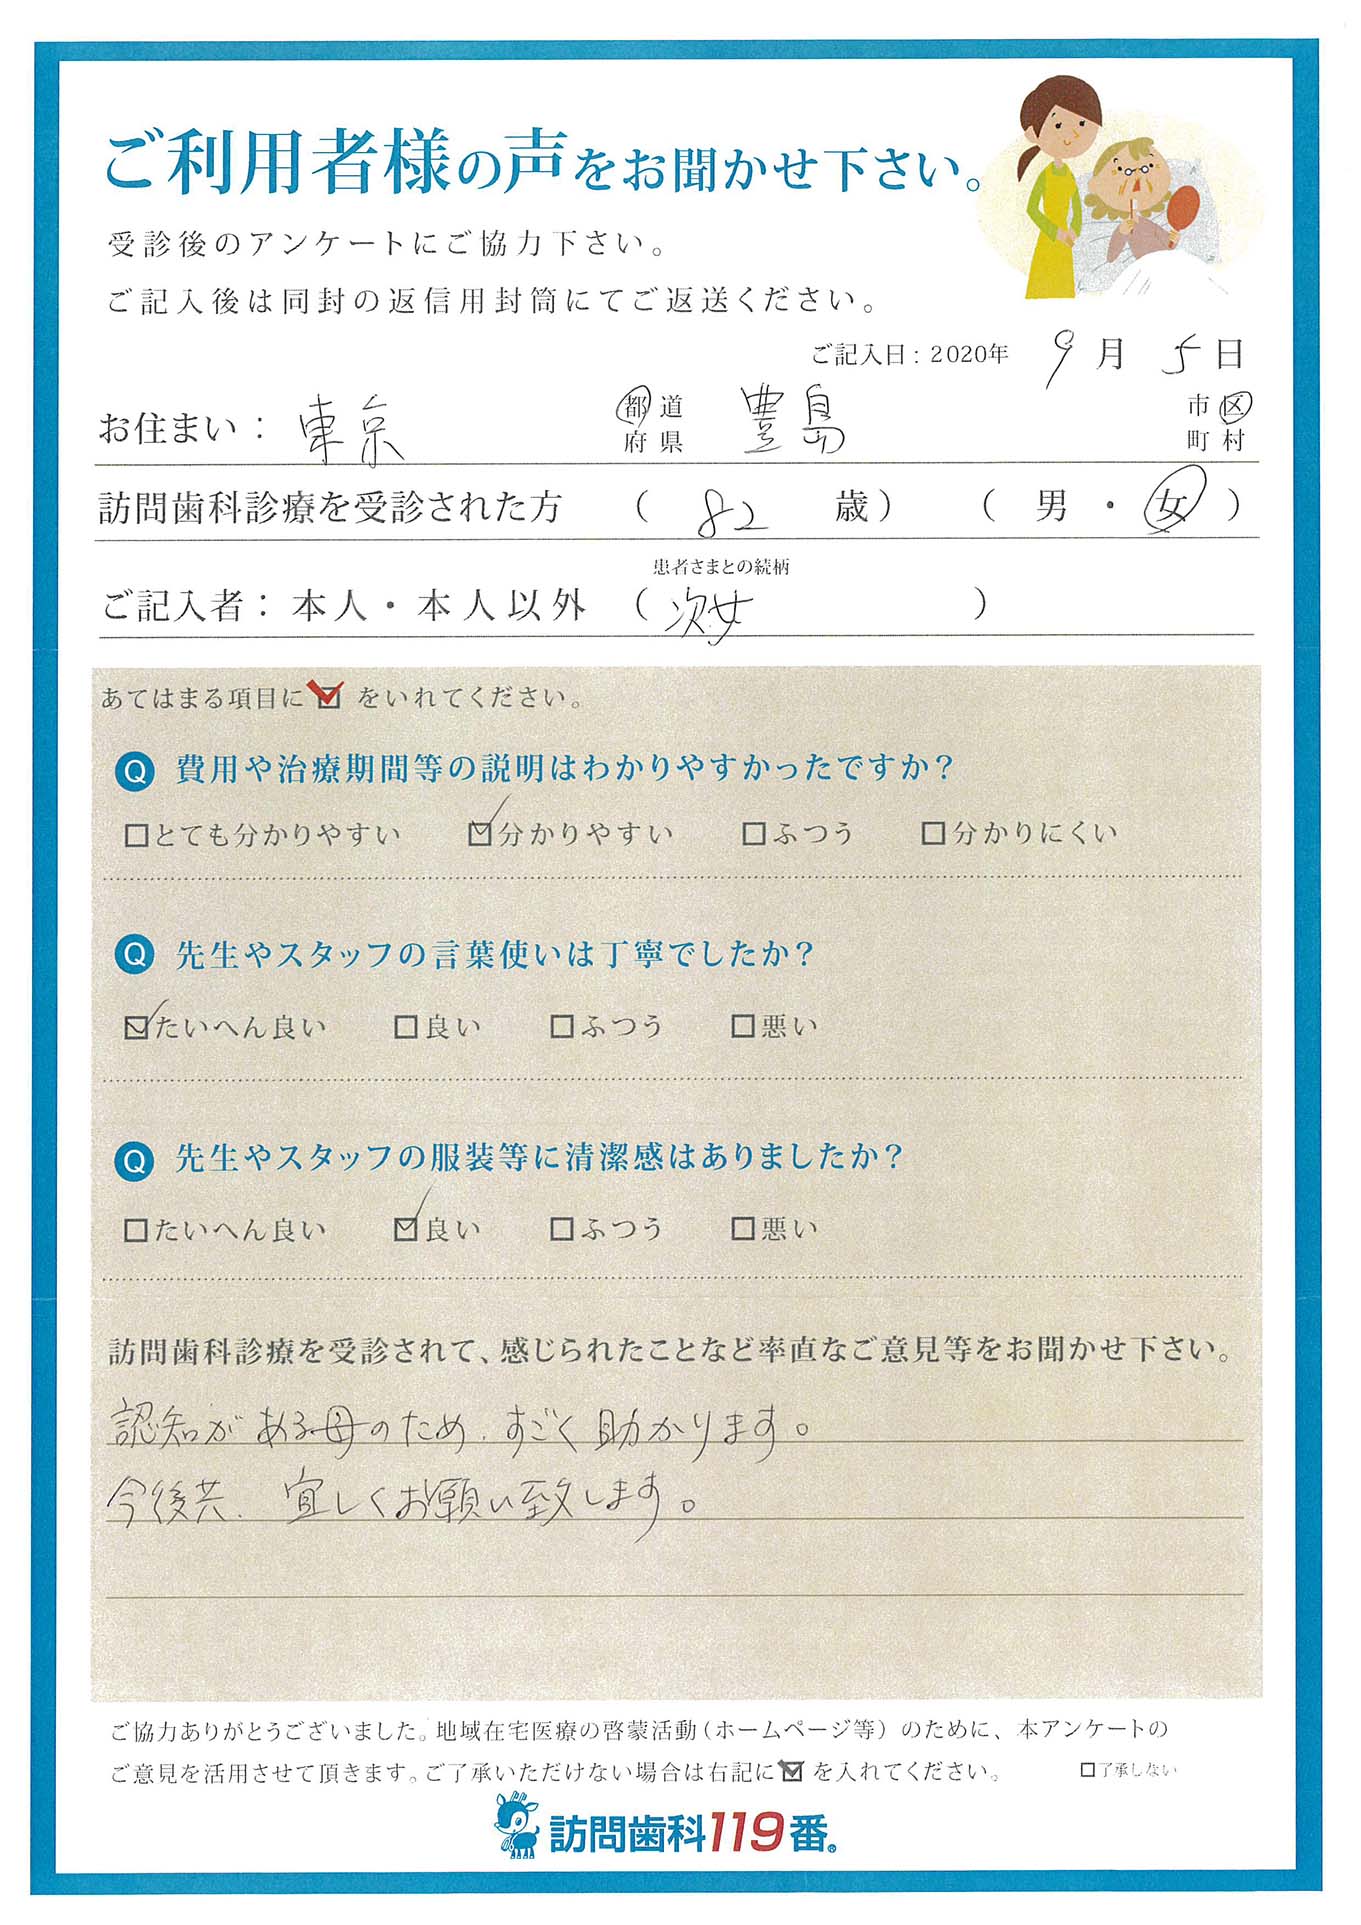 ご利用者様の声をお聞かせ下さい。
受診後のアンケートにご協力下さい。
ご記入後は同封の返信用封筒にてご返送ください。
ご記入日：2020年 9月 5日
お住まい： 東京 都道府県 豊島 市区町村
訪問歯科診療を受診された方 （ 82 歳） （ 男 ・ 女 ）
患者さまとの続柄
ご記入者：本人・本人以外 （ 次女 ）
あてはまる項目に☑をいれてください。
Q 費用や治療期間等の説明はわかりやすかったですか？
□とても分かりやすい ☑分かりやすい □ふつう □分かりにくい
Q 先生やスタッフの言葉使いは丁寧でしたか？
☑たいへん良い □良い □ふつう □悪い
Q 先生やスタッフの服装等に清潔感はありましたか？
□たいへん良い ☑良い □ふつう □悪い
訪問歯科診療を受診されて、感じられたことなど率直なご意見等をお聞かせ下さい。
認知がある母のため、すごく助かります。
今後共、宜しくお願い致します。
ご協力ありがとうございました。地域在宅医療の啓蒙活動（ホームページ等）のために、本アンケートの
ご意見を活用させて頂きます。ご了承いただけない場合は右記に☑を入れてください。 □了承しない
訪問歯科119番®